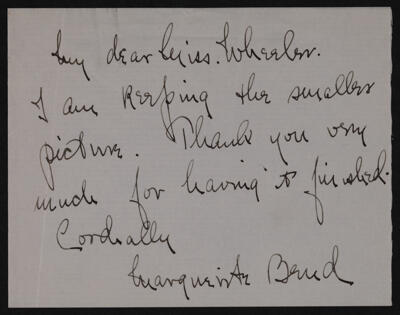 My dear Miss. Wheeler.
I am keeping the smaller
picture. Thank you very
much for having it finished.
Cordially
Marguerite Bend